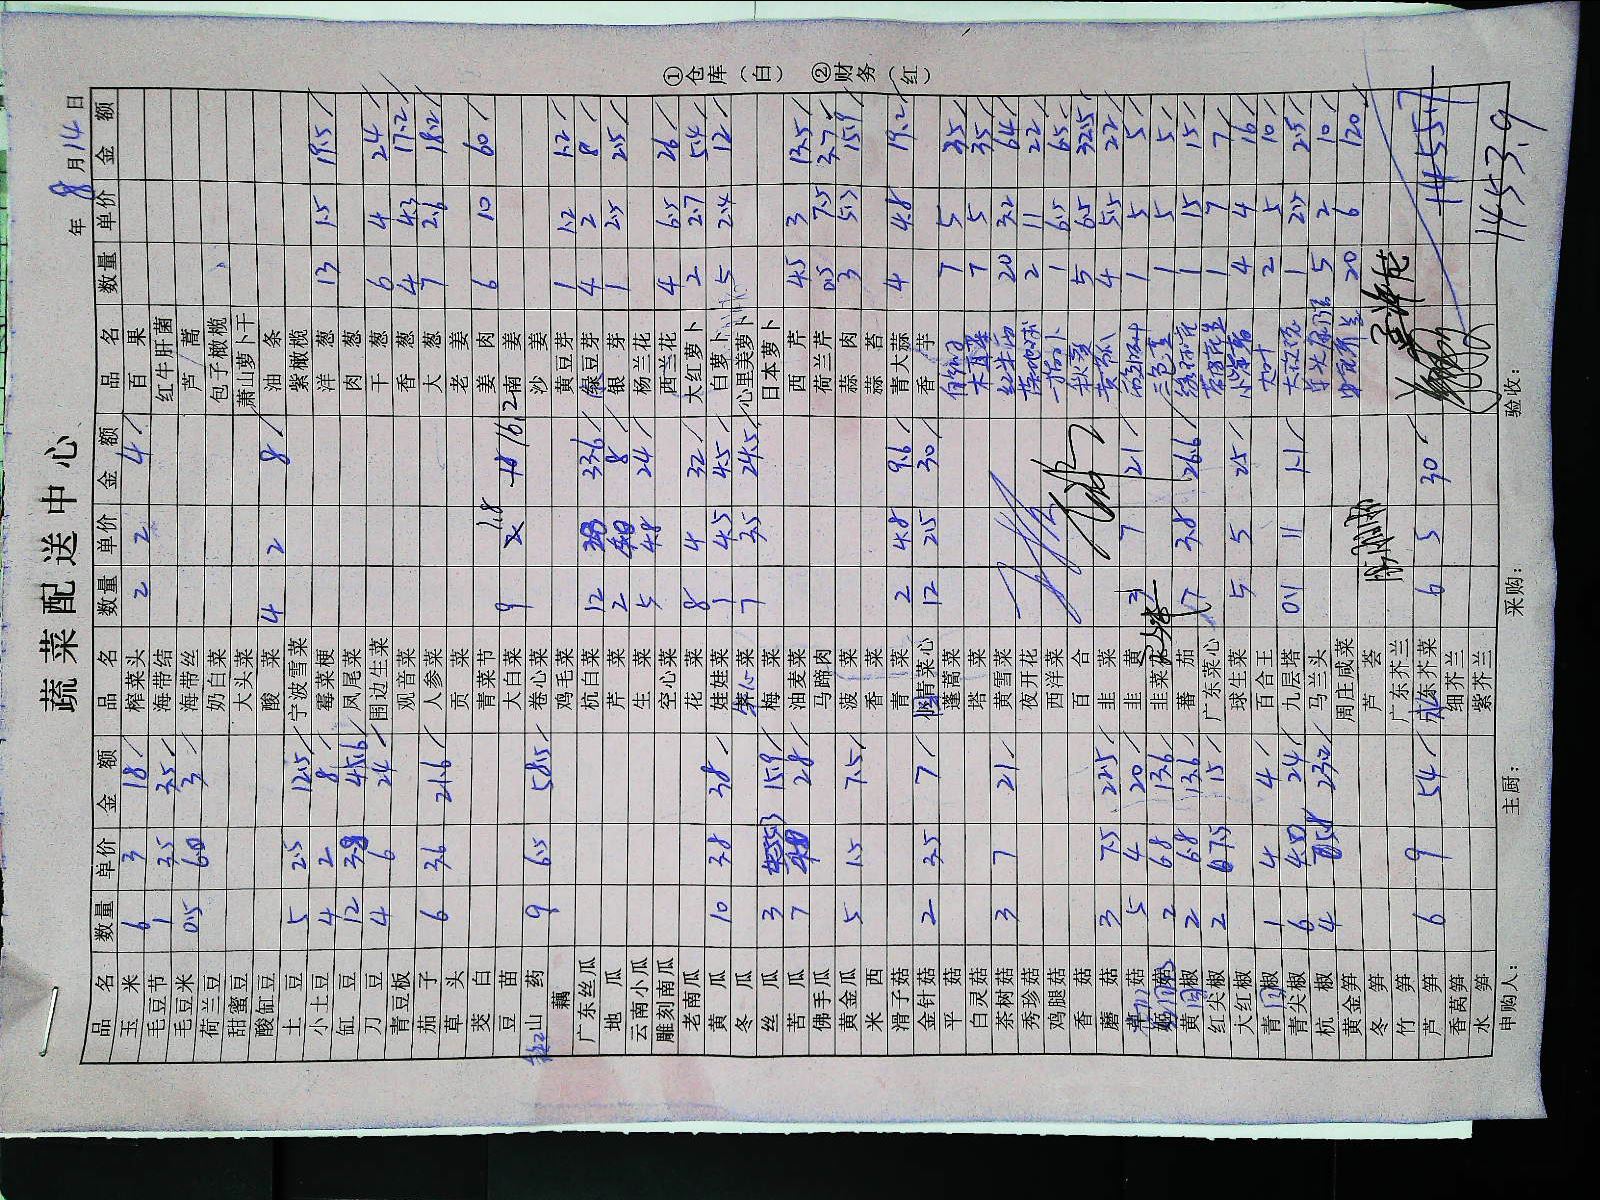 蔬菜配送中心
年 8 月 14 日
品名 数量 单价 金额 品名 数量 单价 金额 品名 数量 单价 金额
玉米 6 3 18 榨菜头 2 2 4 百果
毛豆节 1 3.5 3.5 海带结 红牛肝菌
毛豆米 0.5 6.0 3 海带丝 芦蒿
荷兰豆 奶白菜 包子橄榄
甜蜜豆 大头菜 萧山萝卜干
酸缸豆 酸菜 4 2 8 油条
土豆 5 2.5 12.5 宁波雪菜 紫橄榄
小土豆 4 2 8 霉菜梗 洋葱 13 1.5 19.5
缸豆 12 3.8 45.6 凤尾菜 肉葱
刀豆 4 6 24 围边生菜 干葱 6 4 24
青豆板 观音菜 香葱 4 4.3 17.2
茄子 6 3.6 21.6 人参菜 大葱 7 2.6 18.2
草头 贡菜 老姜
茭白 青菜节 姜肉 6 10 60
豆苗 大白菜 9 1.8 16.2 南姜
山药 9 6.5 58.5 卷心菜 沙姜
藕 鸡毛菜 黄豆芽 1 1.2 1.2
广东丝瓜 杭白菜 12 2.8 33.6 绿豆芽 4 2 8
地瓜 芹菜 2 8 银芽 1 2.5 2.5
云南小瓜 生菜 5 4.8 24 杨兰花
雕刻南瓜 空心菜 西兰花 4 6.5 26
老南瓜 花菜 8 4 32 大红萝卜 2 2.7 5.4
黄瓜 10 3.8 38 娃娃菜 1 4.5 4.5 白萝卜 5 2.4 12
冬瓜 心菜 7 3.5 24.5 心里美萝卜
丝瓜 3 5.3 15.9 梅菜 日本萝卜
苦瓜 7 28 油麦菜 西芹 4.5 3 13.5
佛手瓜 马蹄肉 荷兰芹 0.5 7.5 3.7
黄金瓜 5 1.5 7.5 菠菜 蒜肉 3 5.3 15.9
米西 香菜 蒜苔
滑子菇 青菜 2 4.8 9.6 青大蒜 4 4.8 19.2
金针菇 2 3.5 7 青菜心 12 2.5 30 香芋
平菇 蓬蒿菜 7 5 35
白灵菇 塔菜 7 5 35
茶树菇 3 7 21 黄雪菜 20 3.2 64
秀珍菇 夜开花 2 11 22
鸡腿菇 西洋菜 1 6.5 6.5
香菇 百合 秋葵 5 6.5 32.5
蘑菇 3 7.5 22.5 韭菜 黄瓜 4 5.5 22
菇 5 4 20 韭黄 3 7 21 1 5 5
菇 2 6.8 13.6 韭菜 三色堇 1 5 5
黄椒 2 6.8 13.6 蕃茄 7 3.8 26.6 1 15 15
红尖椒 2 7.5 15 广东菜心 1 7 7
大红椒 球生菜 5 5 25 4 4 16
青椒 1 4 4 百合王 大叶 2 5 10
青尖椒 6 4.0 24 九层塔 0.1 11 1.1 1 2.5 2.5
杭椒 4 5.8 23.2 马兰头 5 2 10
黄金笋 周庄咸菜 20 6 120
冬笋 芦荟
竹笋 广东芥兰
芦笋 6 9 54 芥菜 6 5 30
香莴笋 细芥兰 1455.7
水笋 紫芥兰
申购人： 主厨： 采购： 验收： 1453.9
①仓库（白） ②财务（红）